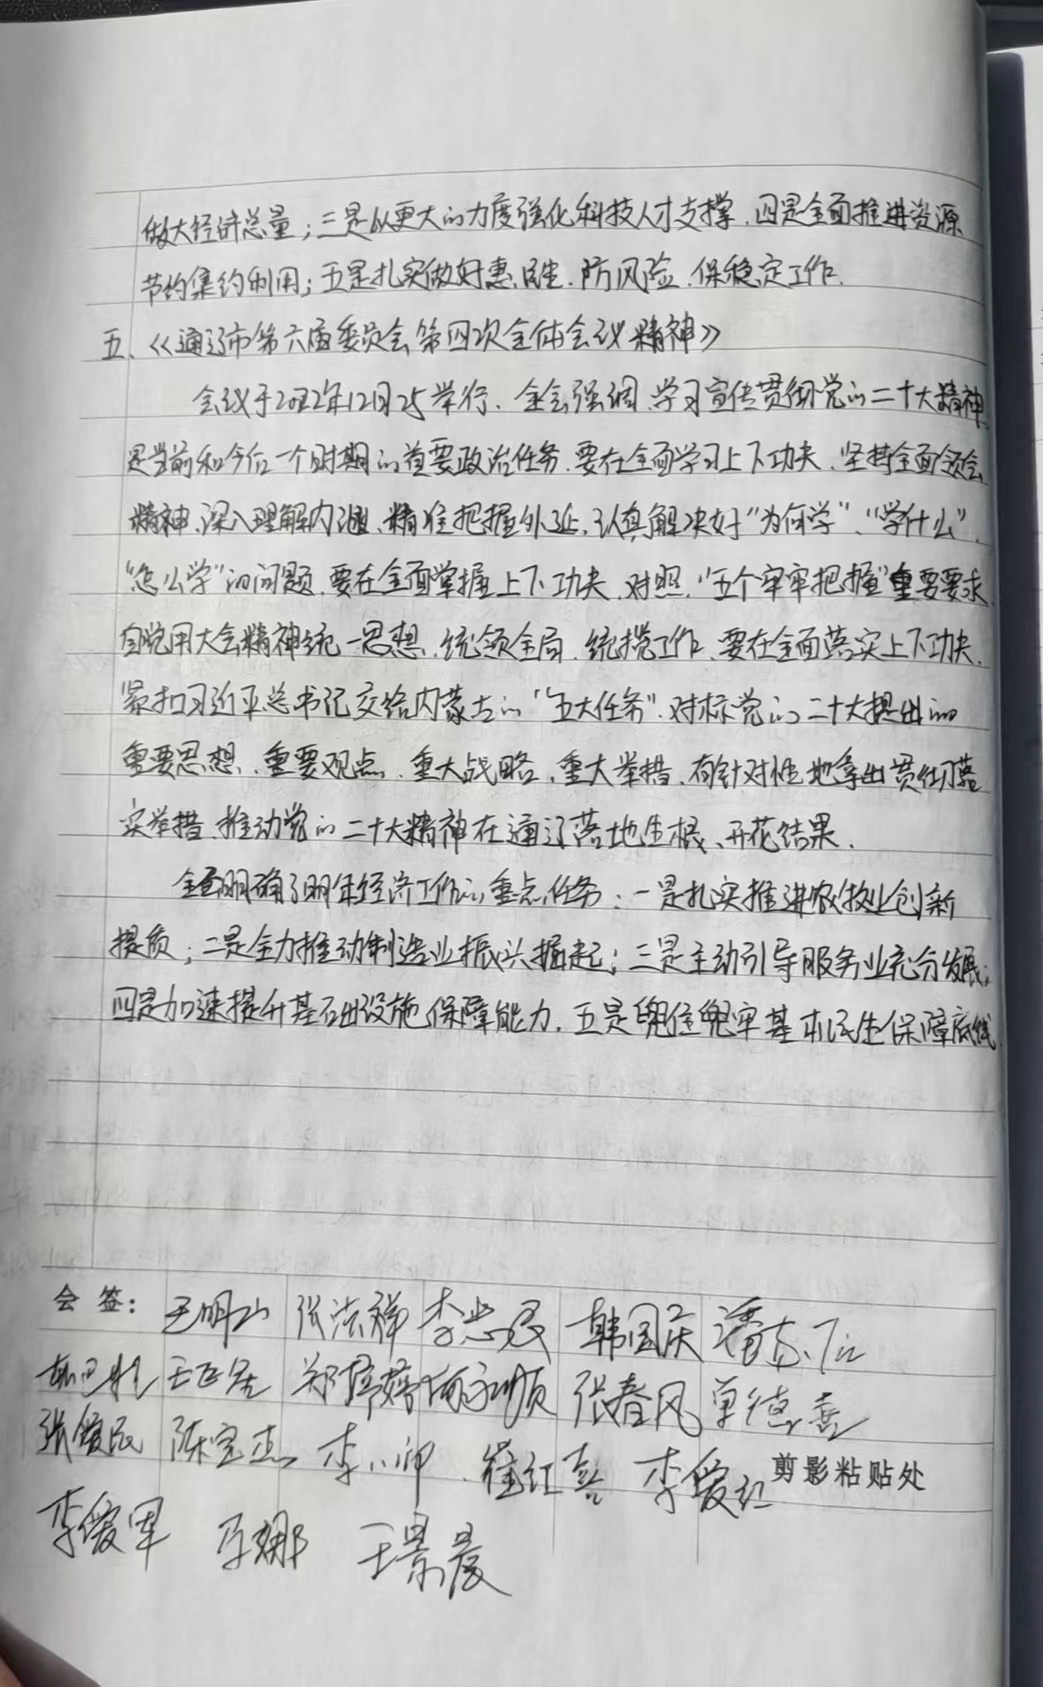 做大经济总量；三是以更大的力度强化科技人才支撑.四是全面推进资源
节约集约利用；五是扎实做好惠民生.防风险.保稳定工作.
五、《通辽市第六届委员会第四次全体会议精神》
会议于2022年12月25举行.全会强调.学习宣传贯彻党的二十大精神
是当前和今后一个时期的首要政治任务.要在全面学习上下功夫.坚持全面领会
精神.深入理解内涵、精准把握外延.认真解决好“为何学”、“学什么”、
“怎么学”的问题.要在全面掌握上下功夫.对照.“五个牢牢把握”重要要求
自觉用大会精神统一思想.统领全局.统揽工作、要在全面落实上下功夫.
紧扣习近平总书记交给内蒙古的“五大任务”.对标党的二十大提出的
重要思想、重要观点、重大战略、重大举措.有针对性地拿出贯彻落
实举措.推动党的二十大精神在通辽落地生根、开花结果.
全会明确了明年经济工作的重点任务：一是扎实推进农牧业创新
提质；二是全力推动制造业振兴掘起；三是主动引导服务业充分发展；
四是加速提升基础设施保障能力.五是兜住兜牢基本民生保障底线.
会签： 王明山 张法祥 李忠民 韩国庆
王正居 郑婷婷 张春风 单德喜
张俊民 陈宝杰 李小帅 崔红喜 李爱红 剪影粘贴处
李俊军 王景晨